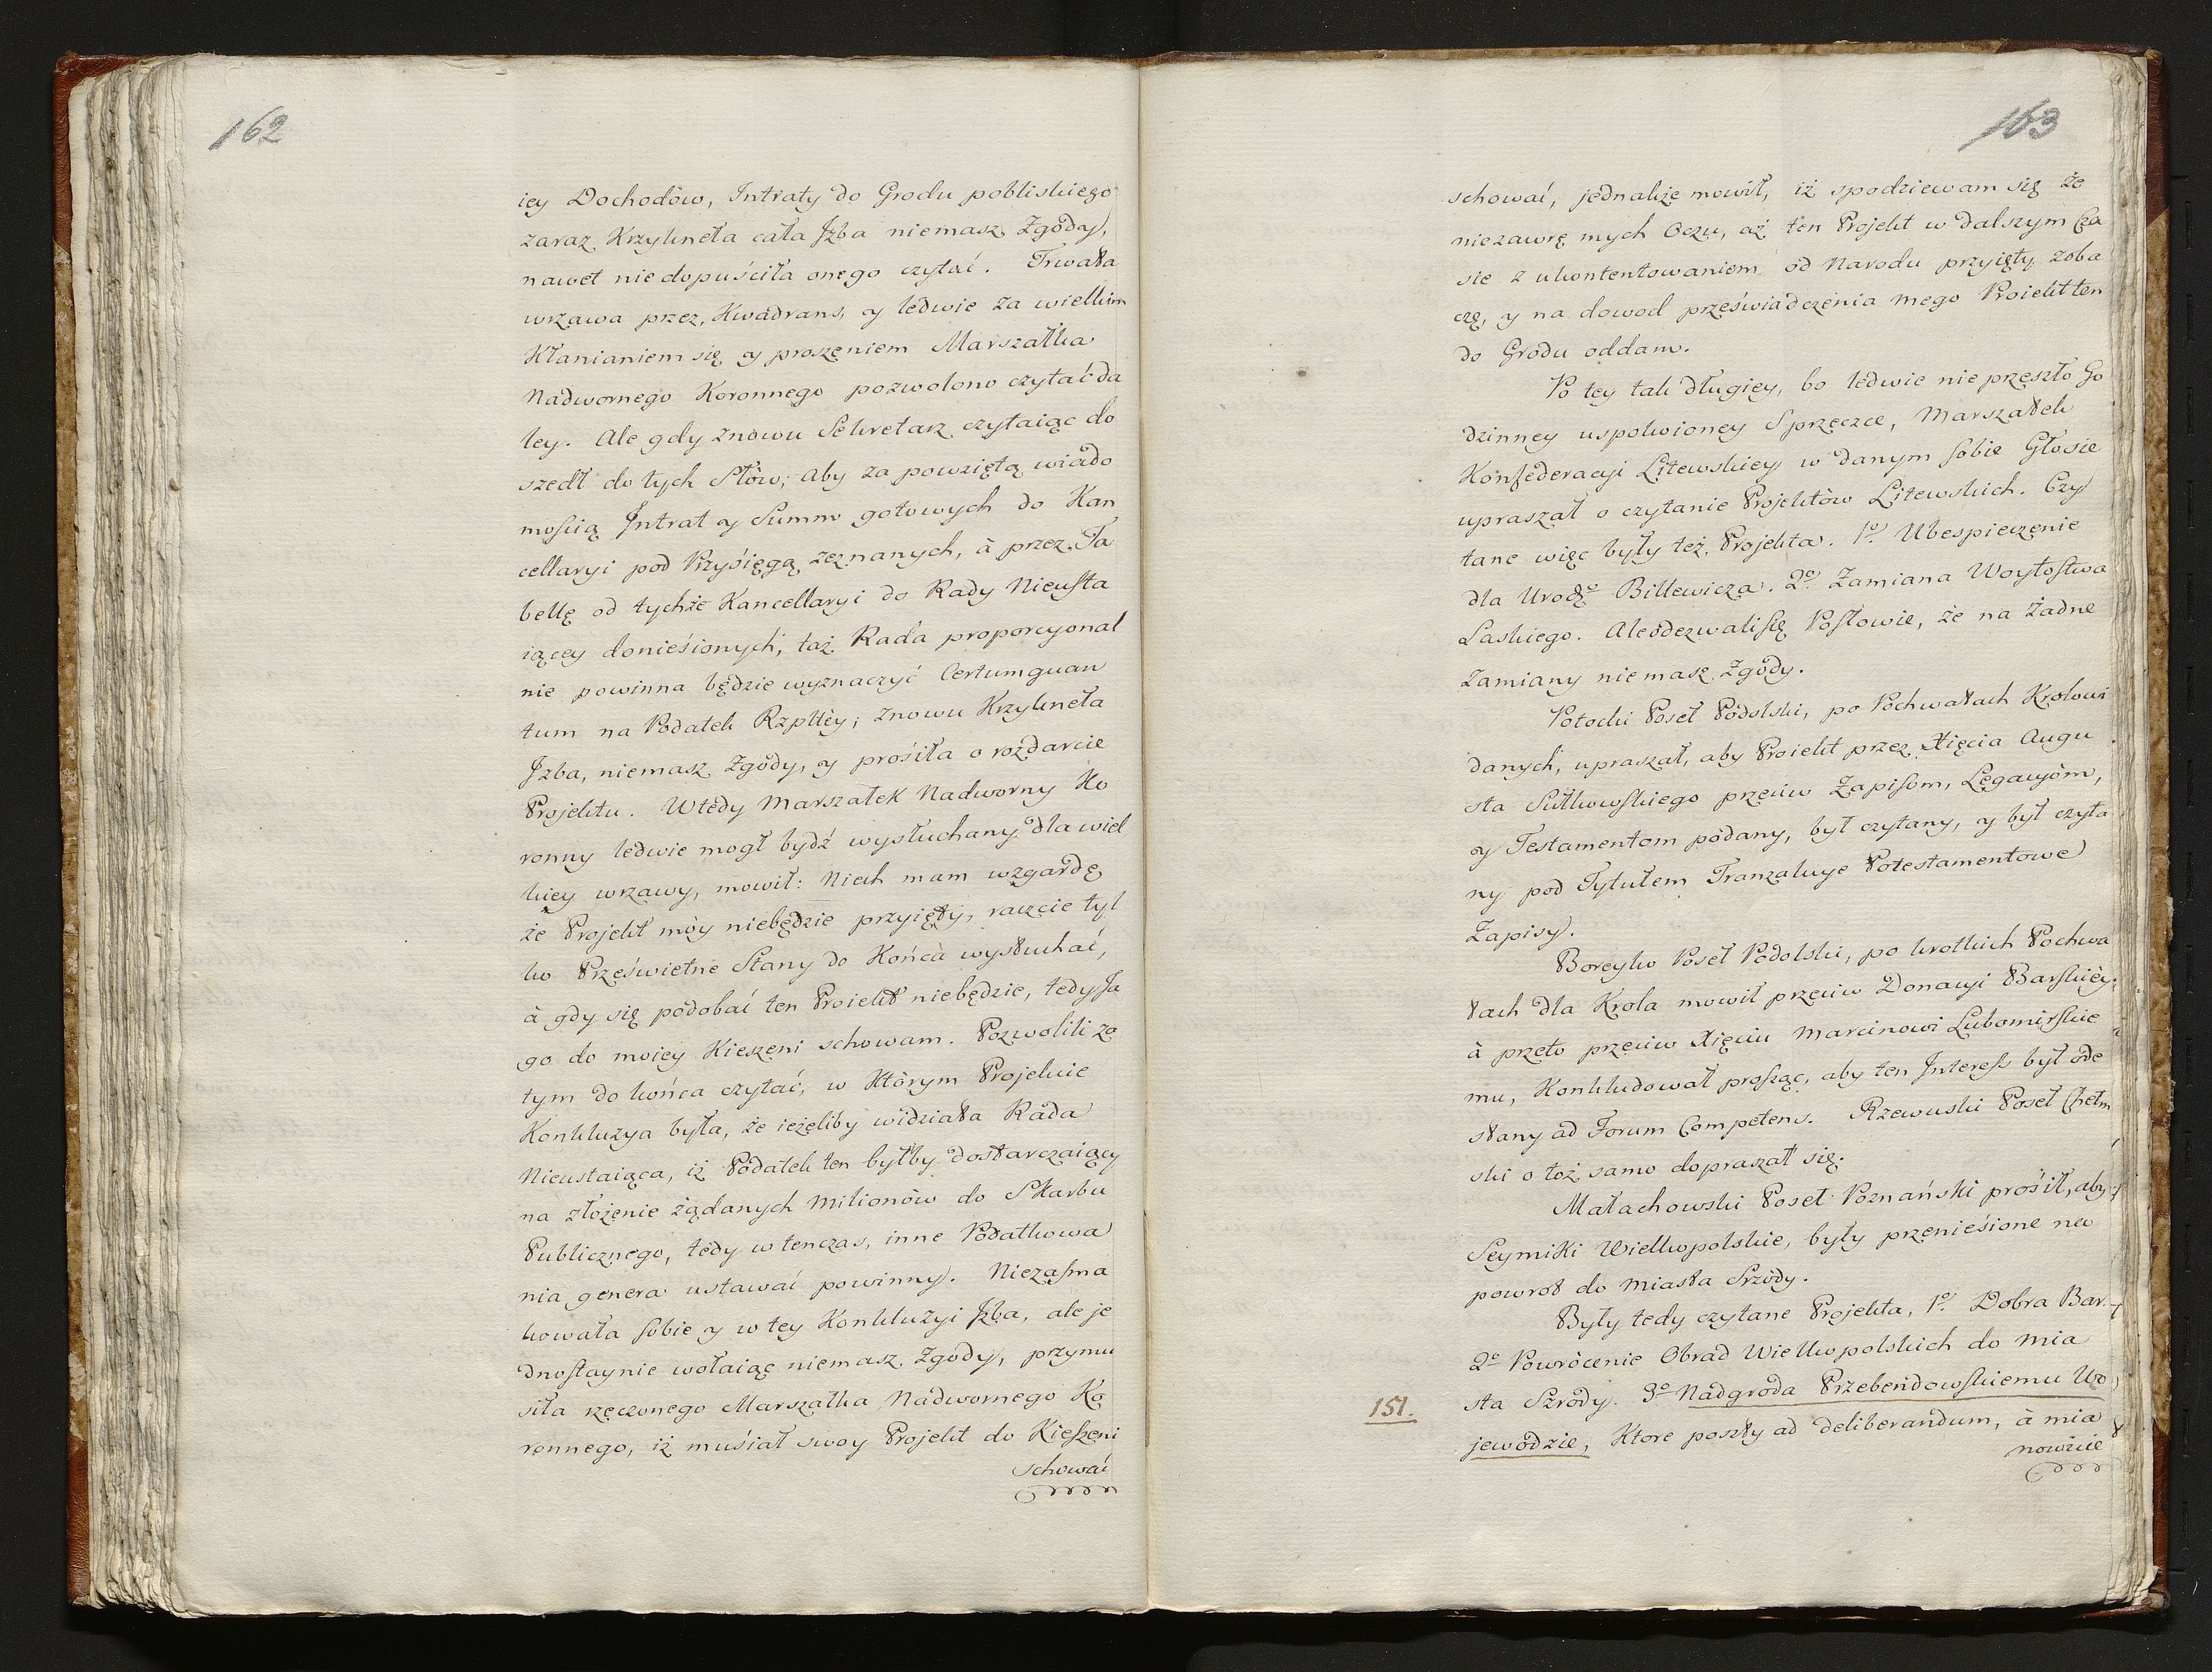 162
iey Dochodów, Intraty do Grodu pobliskiego
zaraz Krzyknęła cała Jzba niemasz Zgody,
nawet nie dopuściła onego czytać. Trwała
wrzawa przez Kwadrans, y ledwie za wielkim
Kłanianiem się y proszęniem Marszałka
Nadwornego Koronnego pozwolono czytać da
ley. Ale gdy znowu Sekretarz czytaiąc do
szedł do tych Słów; aby za powziętą wiado
mością Jntrat y Summ gotowych do Kan
cellaryi pod Przysięgą zeznanych, à przez Ta
bellę od tychże Kancellaryi do Rady Nieusta
iącey doniesionych, taż Rada proporcyonal
nie powinna będzie wyznaczyć Certum quan
tum na Podatek Rzpltey; znowu Krzyknęła
Jzba, niemasz Zgody, y prosiła o rozdarcie
Projektu. Wtedy Marszałek Nadworny Ko
ronny ledwie mogł bydź wysłuchany dla wiel
kiey wrzawy, mowił: Niech mam wzgardę,
że Projekt móy niebędzie przyięty, raczcie tyl
ko Prześwietne Stany do Końca wysłuchać,
à gdy się podobać ten Proiekt niebędzie, tedy Ja
go do moiey Kieszęni schowam. Pozwolili za
tym do końca czytać, w Którym Projekcie
Konkluzya była, że ieżeliby widziała Rada
Nieustaiąca, iż Podatek ten byłby dostarczaiący
na złożenie żądanych Milionów do Skarbu
Publicznego, tedy w tenczas, inne Podatkowa
nia genera ustawać powinny. Niezasma
kowała sobie y w tey Konkluzyi Jzba, ale je
dnostaynie wołaiąc niemasz Zgody, przymu
siła rzęczonego Marszałka Nadwornego Ko
ronnego, iż musiał swoy Projekt do Kieszeni
schować
163
schować, jednakże mowił, iż spodziewam się że
niezawrę mych Oczu, aż ten Projekt w dalszym Cza
sie z ukontentowaniem od Narodu przyięty zoba
czę, y na dowod przeświadczenia mego Proiekt ten
do Grodu oddam.
Po tey tak długiey, bo ledwie nie przeszło Go
dzinney uspokoioney Sprzęczce, Marszałek
Konfederacyi Litewskiey w danym sobie Głosie
upraszał o czytanie Projektów Litewskich. Czy
tane więc były też Projekta. 1º Ubespieczęnie
dla Urodzº Billewicza. 2º Zamiana Woytostwa
Laskiego. Ale odezwali się Posłowie, że na żadne
Zamiany niemasz Zgody.
Potocki Poseł Podolski, po Pochwałach Krolowi
danych, upraszał, aby Proiekt przez Xięcia Augu
sta Sułkowskiego przeciw Zapisom, Legacyóm,
y Testamentom podany, był czytany, y był czyta
ny pod Tytułem Tranzakcye Potestamentowe
Zapisy.
Boreyko Poseł Podolski, po krotkich Pochwa
łach dla Krola mowił przeciw Donacyi Barskiéy,
à przeto przeciw Xięciu Marcinowi Lubomirskie
mu, Konkludował prosząc, aby ten Jnteress był ode
słany ad Forum Competens. Rzewuski Poseł Chełm
ski o toż samo dopraszał się.
Małachowski Poseł Poznański prosił, aby
Seymiki Wielkopolskie, były przeniesione na
powrot do Miasta Srzody.
Były tedy czytane Projekta, 1º Dobra Bar
2º Powrócenie Obrad Wielkopolskich do Mia
sta Szrody. 3º Nadgroda Przebendowskiemu Wo
151.
jewodzie, Ktore poszły ad deliberandum, à mia
nowicie